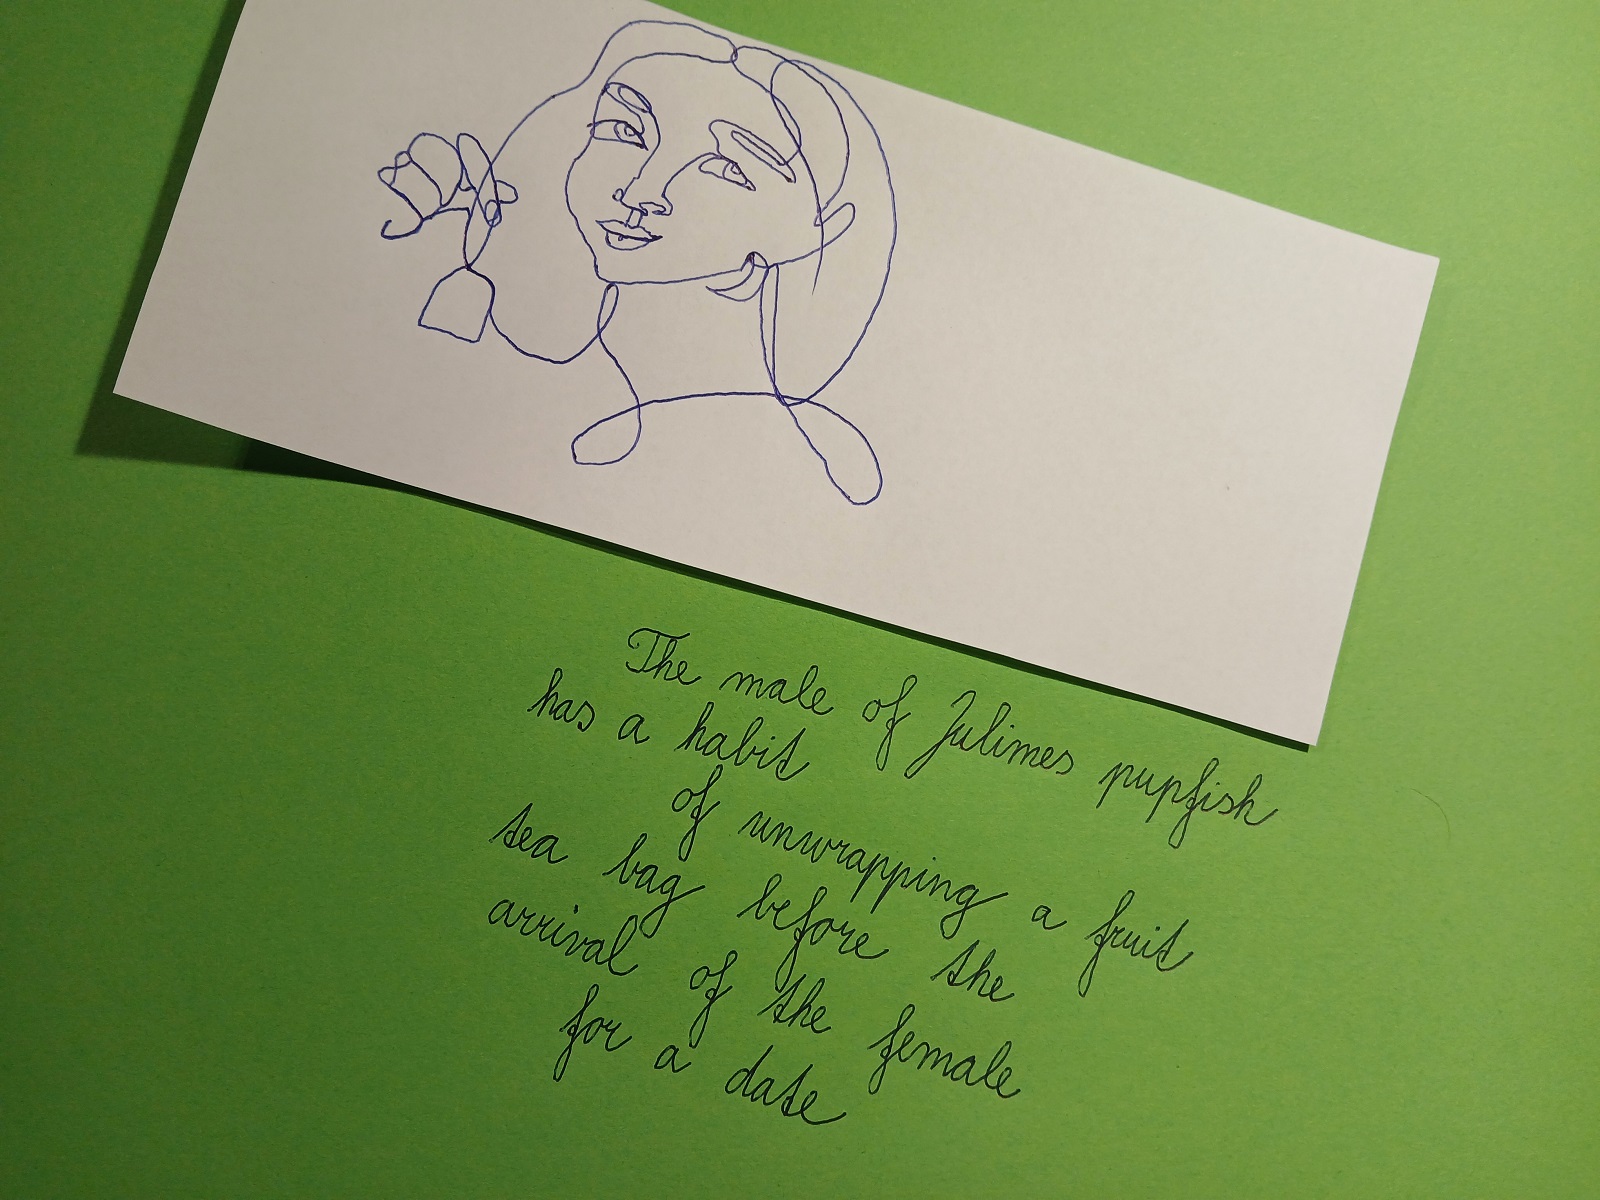 The male of Julimes pupfish
has a habit
of unwrapping a fruit
tea bag before the
arrival of the female
for a date